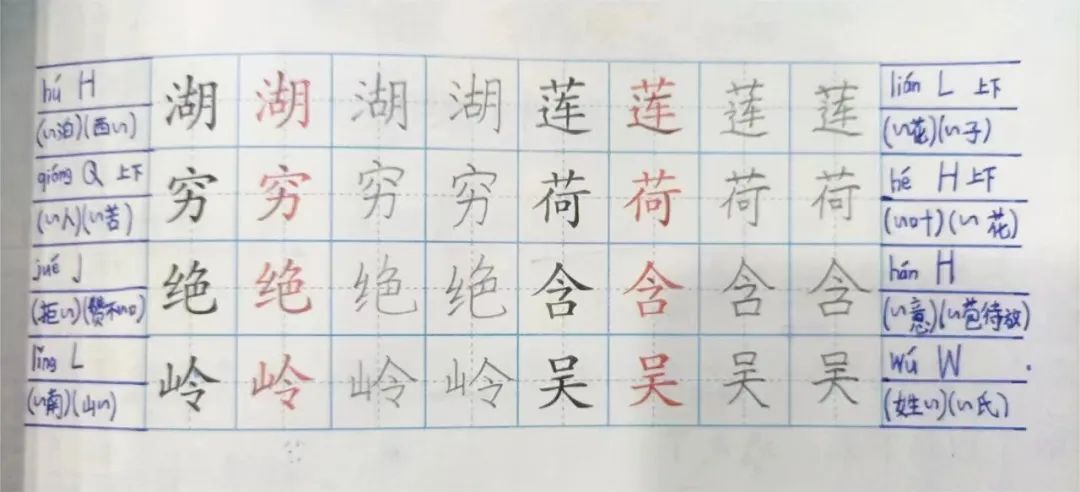 hú H 湖 湖 湖 湖 莲 莲 莲 莲 lián L 上下
(~泊)(西~) (~花)(~子)
qióng Q 上下 穷 穷 穷 穷 荷 荷 荷 荷 hé H 上下
(~人)(~苦) (~叶)(~花)
jué J 绝 绝 绝 绝 含 含 含 含 hán H
(拒~)(赞不~口) (~意)(~苞待放)
lǐng L 岭 岭 岭 岭 吴 吴 吴 吴 wú W
(~南)(山~) (姓~)(~氏)